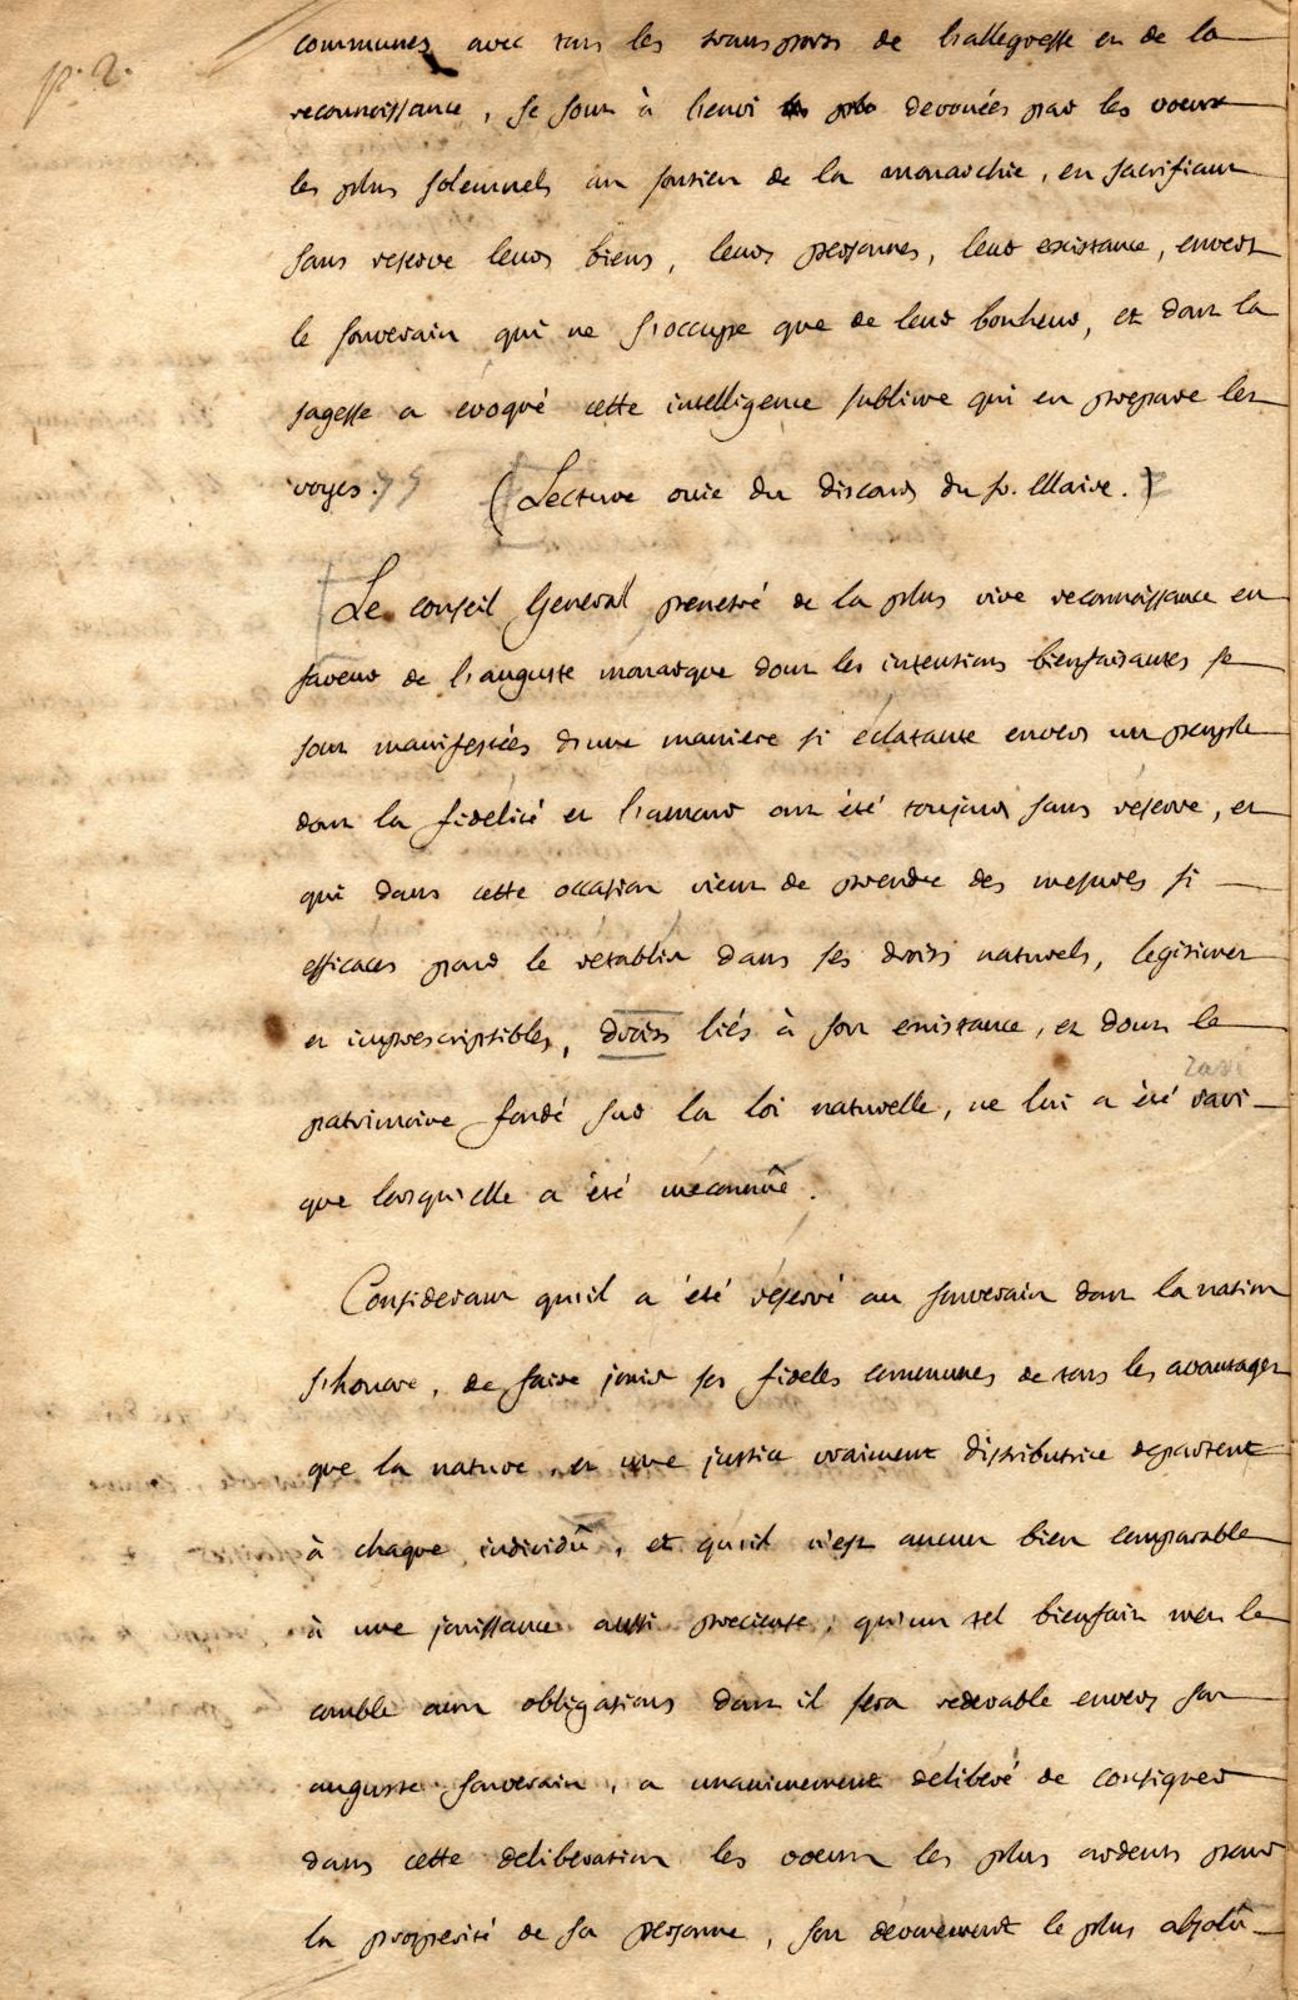 p. 2.
communes avec tous les transports de l'allegresse et de la
reconnoissance, se sont à l'envi devouées par les voeux
les plus solemnels au soutien de la monarchie, en sacrifiant
sans reserve leurs biens, leurs personnes, leur existance, envers
le souverain qui ne s'occupe que de leur bonheur, et dont la
sagesse a évoqué cette intelligence sublime qui en prepare les
voyes.
(Lecture ouie du discours du sr. Maire.)
Le conseil General penetré de la plus vive reconnoissance en
faveur de l'auguste monarque dont les intentions bienfaisantes se
sont manifestées d'une maniere si éclatante envers un peuple
dont la fidélité et l'amour ont été toujours sans réserve, et
qui dans cette occasion vient de prendre des mesures si
efficaces pour le rétablir dans ses droits naturels, legitimes
et imprescriptibles, droits liés à son existance, et dont le
ravi
patrimoine fondé sur la loi naturelle, ne lui a été ravi
que lorsqu'elle a été méconnûe.
Considerant qu'il a été réservé au souverain dont la nation
s'honore, de faire jouir ses fideles communes de tous les avantages
que la nature, et une justice vraiment distributrice departent
à chaque individû, et qu'il n'est aucun bien comparable
à une jouissance aussi precieuse, qu'un tel bienfait met le
comble aux obligations dont il sera redevable envers son
auguste souverain, a unanimement déliberé de consigner
dans cette deliberation les voeux les plus ardents pour
la prosperité de sa personne, son devouement le plus absolû